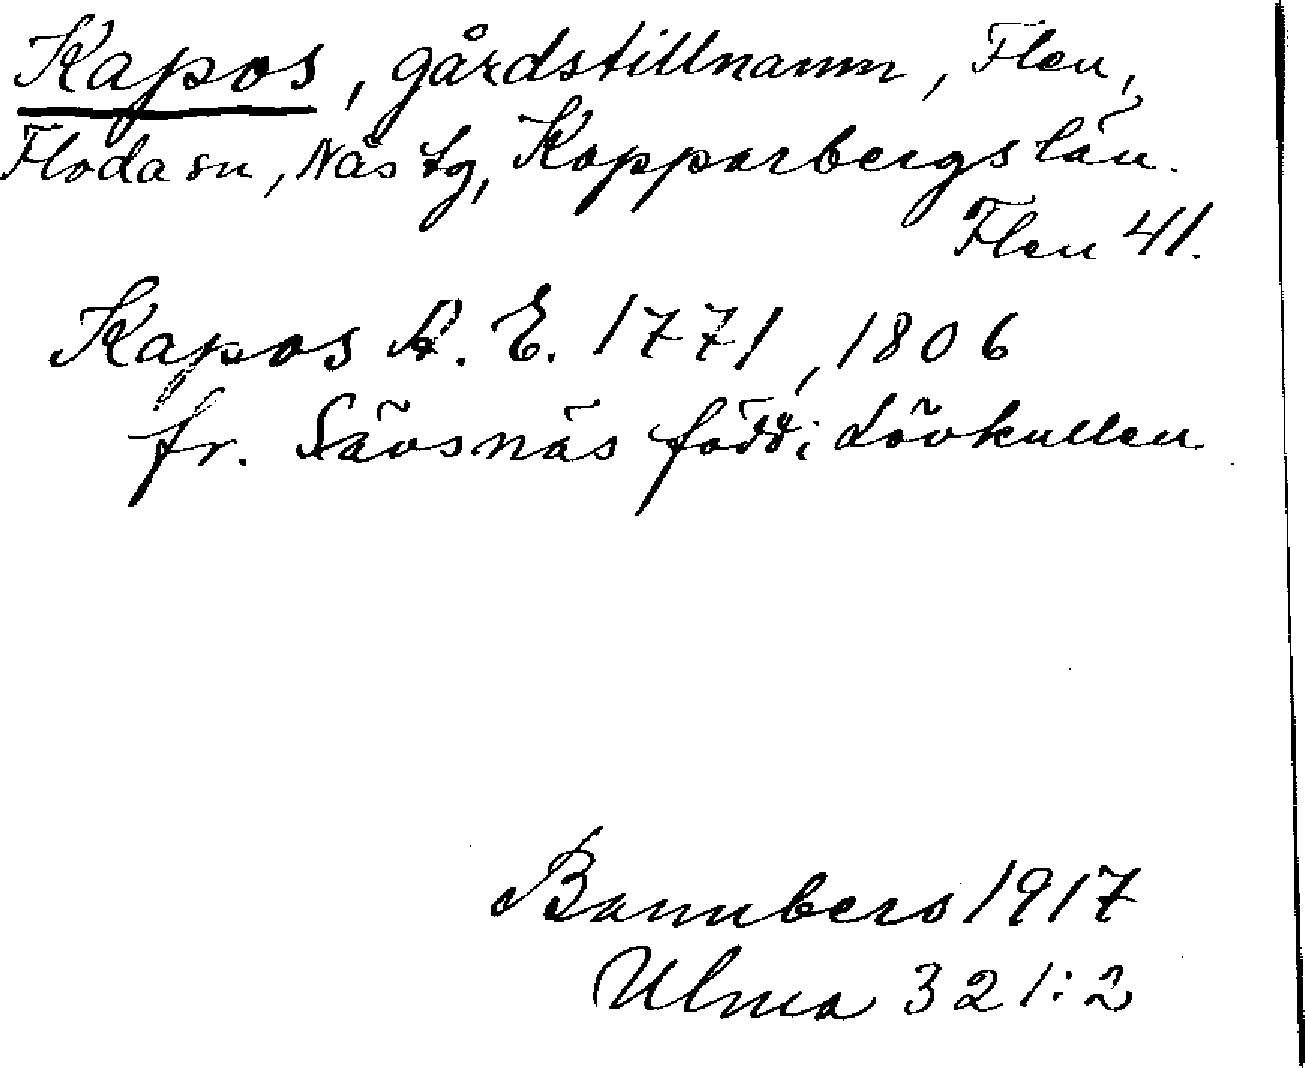 Kapos, gårdstillnamn, Flen,
Floda sn, Nås tg, Kopparbergs län.
Flen 41.
Kapos A. E. 1771, 1806
fr. Sävsnäs född i Lövkullen
Bannbers 1917
Ulma 321:2